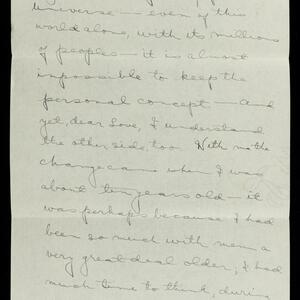 universe — even of this
world alone, with its millions
of peoples — it is almost
impossible to keep the
personal concept — And
yet, dear love, I understand
the other side, too. With me the
change came when I was
about ten years old — it
was perhaps because I had
been so much with men a
very great deal older, I had
much time to think, during